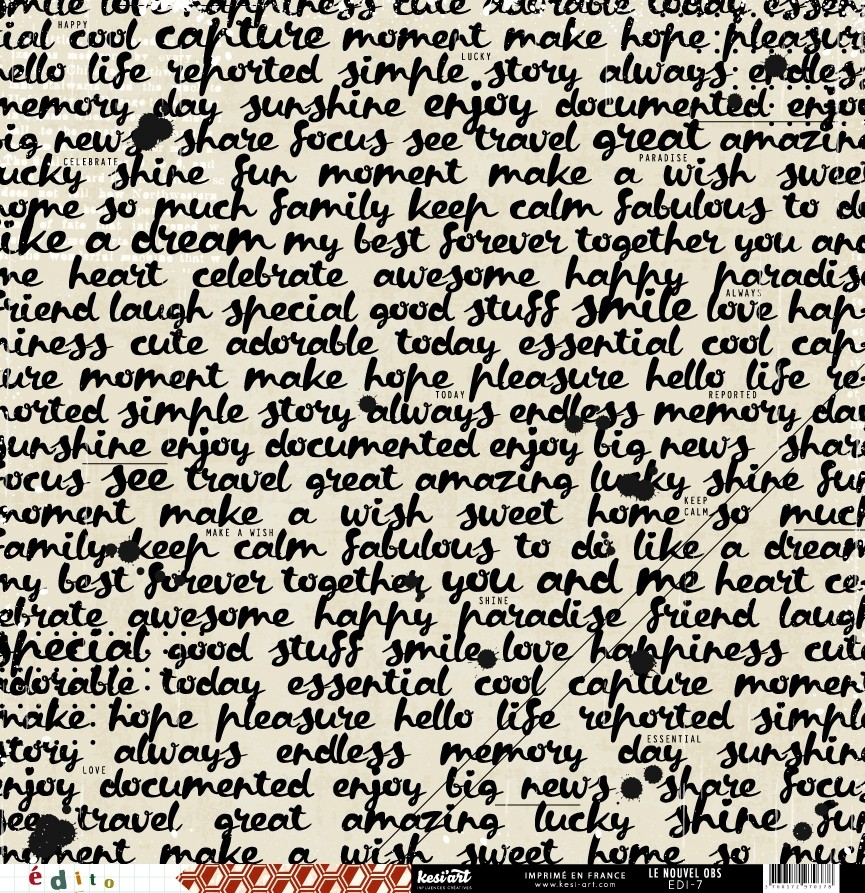 smile love happiness cute adorable today essen
HAPPY
ial cool capture moment make hope pleasur
LUCKY
hello life reported simple story always endles
memory day sunshine enjoy documented enjo
big news share focus see travel great amazin
CELEBRATE PARADISE
ucky shine fun moment make a wish sweet
home so much family keep calm fabulous to do
like a dream my best forever together you and
me heart celebrate awesome happy paradis
ALWAYS
friend laugh special good stuff smile love hap
piness cute adorable today essential cool cap
ure moment make hope pleasure hello life re
TODAY REPORTED
ported simple story always endless memory day
sunshine enjoy documented enjoy big news share
focus see travel great amazing lucky shine fun
KEEP
CALM
moment make a wish sweet home so much
MAKE A WISH
family keep calm fabulous to do like a dream
my best forever together you and me heart ce
SHINE
ebrate awesome happy paradise friend laugh
special good stuff smile love happiness cute
adorable today essential cool capture moment
make hope pleasure hello life reported simple
ESSENTIAL
story always endless memory day sunshine
LOVE
enjoy documented enjoy big news share focus
see travel great amazing lucky shine fun
moment make a wish sweet home so much
édito
kesi'art
INFLUENCES CRÉATIVES
IMPRIMÉ EN FRANCE
www.kesi-art.com
LE NOUVEL OBS
EDI-7